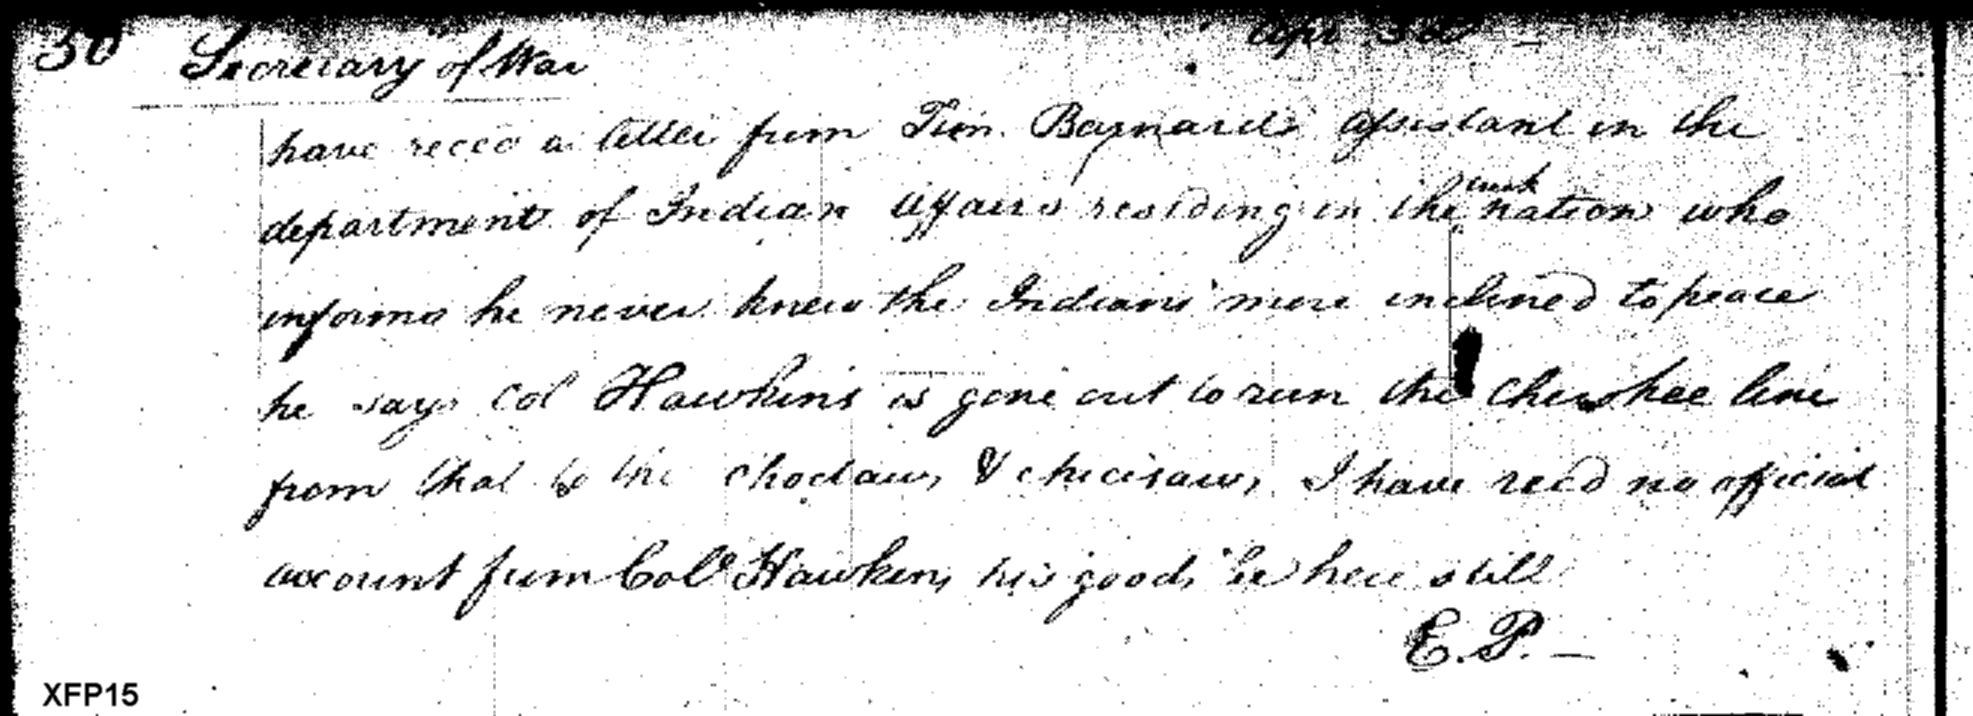 50 Secretary of War Apr 30
have recd a letter from Tim. Barnard assistant in the
department of Indian affairs residing in the creek nation who
informs he never knew the Indians more inclined to peace
he says Col Hawkins is gone out to run the Cherokee line
from that to the Choctaw, & chicisaw, I have recd no official
account from Col Hawkins, his goods lie here still
E. P. —
XFP15